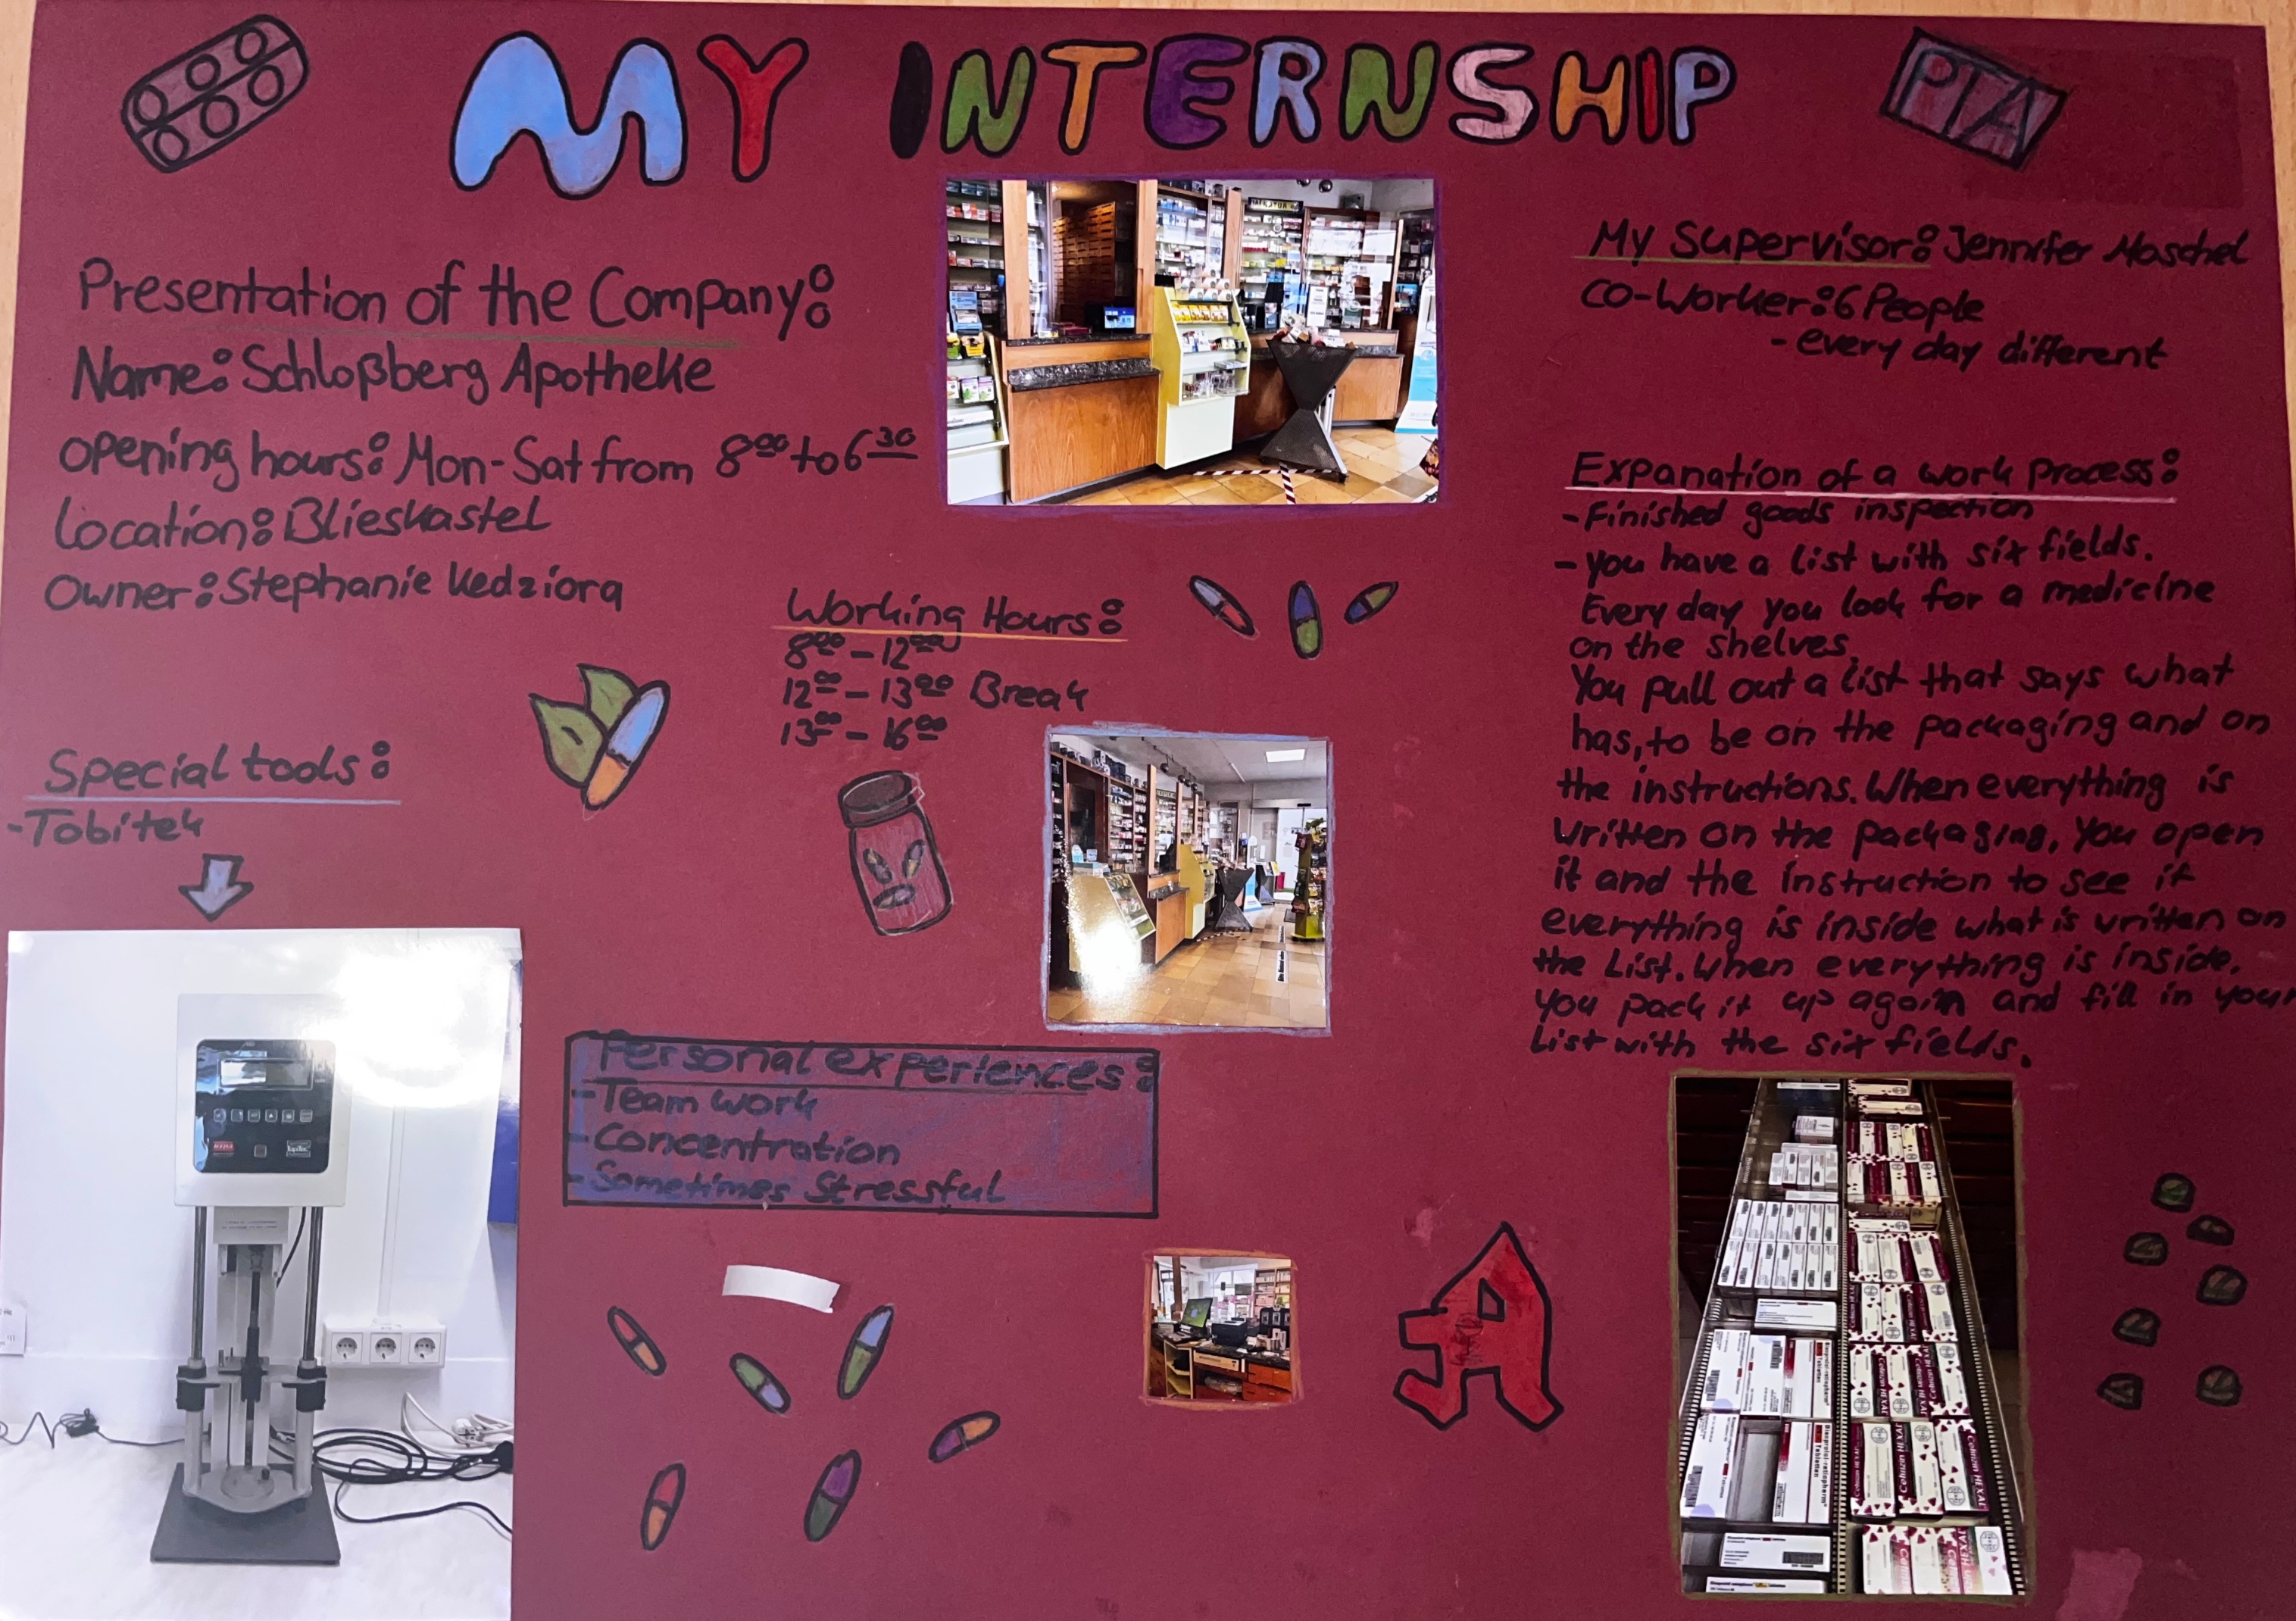 MY INTERNSHIP
PTA
Presentation of the Company:
Name: Schloßberg Apotheke
opening hours: Mon-Sat from 8⁰⁰ to 6³⁰
Location: Blieskastel
Owner: Stephanie Kedziora
Special tools:
-Tobitek
Working Hours:
8⁰⁰ - 12⁰⁰
12⁰⁰ - 13⁰⁰ Break
13⁰⁰ - 16⁰⁰
Personal experiences:
-Team work
-Concentration
-Sometimes Stressful
My Supervisor: Jennifer Moschel
CO-Worker: 6 People
- every day different
Expanation of a work process:
-Finished goods inspection
- you have a list with six fields.
Every day you look for a medicine
on the shelves.
You pull out a list that says what
has, to be on the packaging and on
the instructions. When everything is
written on the packaging, you open
it and the instruction to see if
everything is inside what is written on
the List. When everything is inside,
you pack it up again and fill in your
List with the six fields.
A
Bisoprolol-ratiopharm
Tabletten